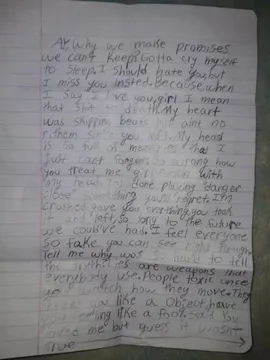 Ay, Why we make promises
we can't keep, Gotta cry myself
to sleep, I should hate you, but
I miss you insted. Because, when
I say I love you, girl I mean
that shit to death. My heart
was skipping beats but aint no
rithem since you left. My head
is so full of memories that I
just can't forget. So wrong how
you treat me girl
with my head. I'm done playing danger
close something you'll regret. I'm
crused gave you everything you took
it and left, so long to the future
we could've had. I feel everyone
so fake, you can see
Tell me why was so hard to tell
the truth, lies are weapons that
everybody use. People toxic once
you watch how they move. They
you like a object, have
feeling like a fool. Said you
loved me but guess it wasn't
true →